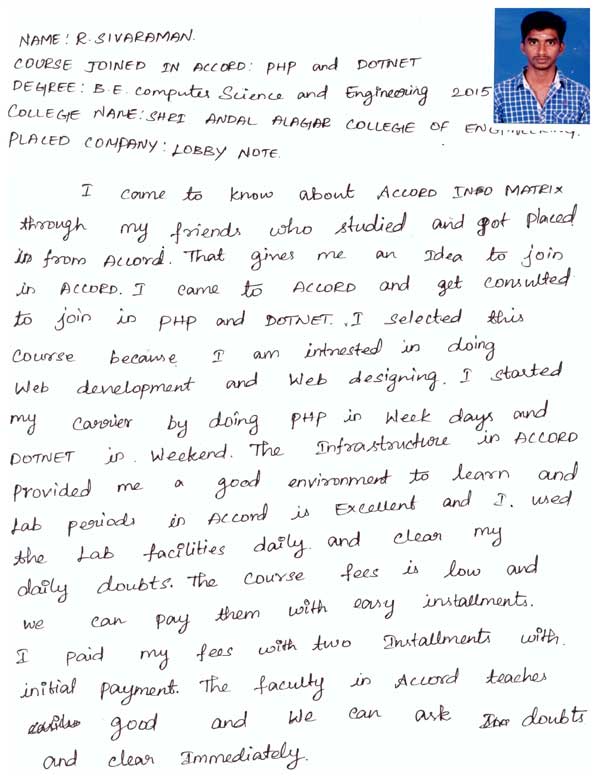 NAME: R. SIVARAMAN.
COURSE JOINED IN ACCORD: PHP and DOTNET
DEGREE: B.E. Computer Science and Engineering 2015
COLLEGE NAME: SHRI ANDAL ALAGAR COLLEGE OF ENGINEERING.
PLACED COMPANY: LOBBY NOTE.
I came to know about ACCORD INFO MATRIX
through my friends who studied and got placed
in from Accord. That gives me an Idea to join
in ACCORD. I came to ACCORD and get consulted
to join in PHP and DOTNET. I Selected this
Course because I am intrested in doing
Web development and Web designing. I started
my Carrier by doing PHP in Week days and
DOTNET in Weekend. The Infrastructure in ACCORD
Provided me a good environment to learn and
Lab periods in Accord is Excellent and I used
the Lab facilities daily and clear my
daily doubts. The Course fees is low and
we can pay them with easy installments.
I paid my fees with two Installments with
initial payment. The faculty in Accord teaches
good and We can ask doubts
and clear Immediately.